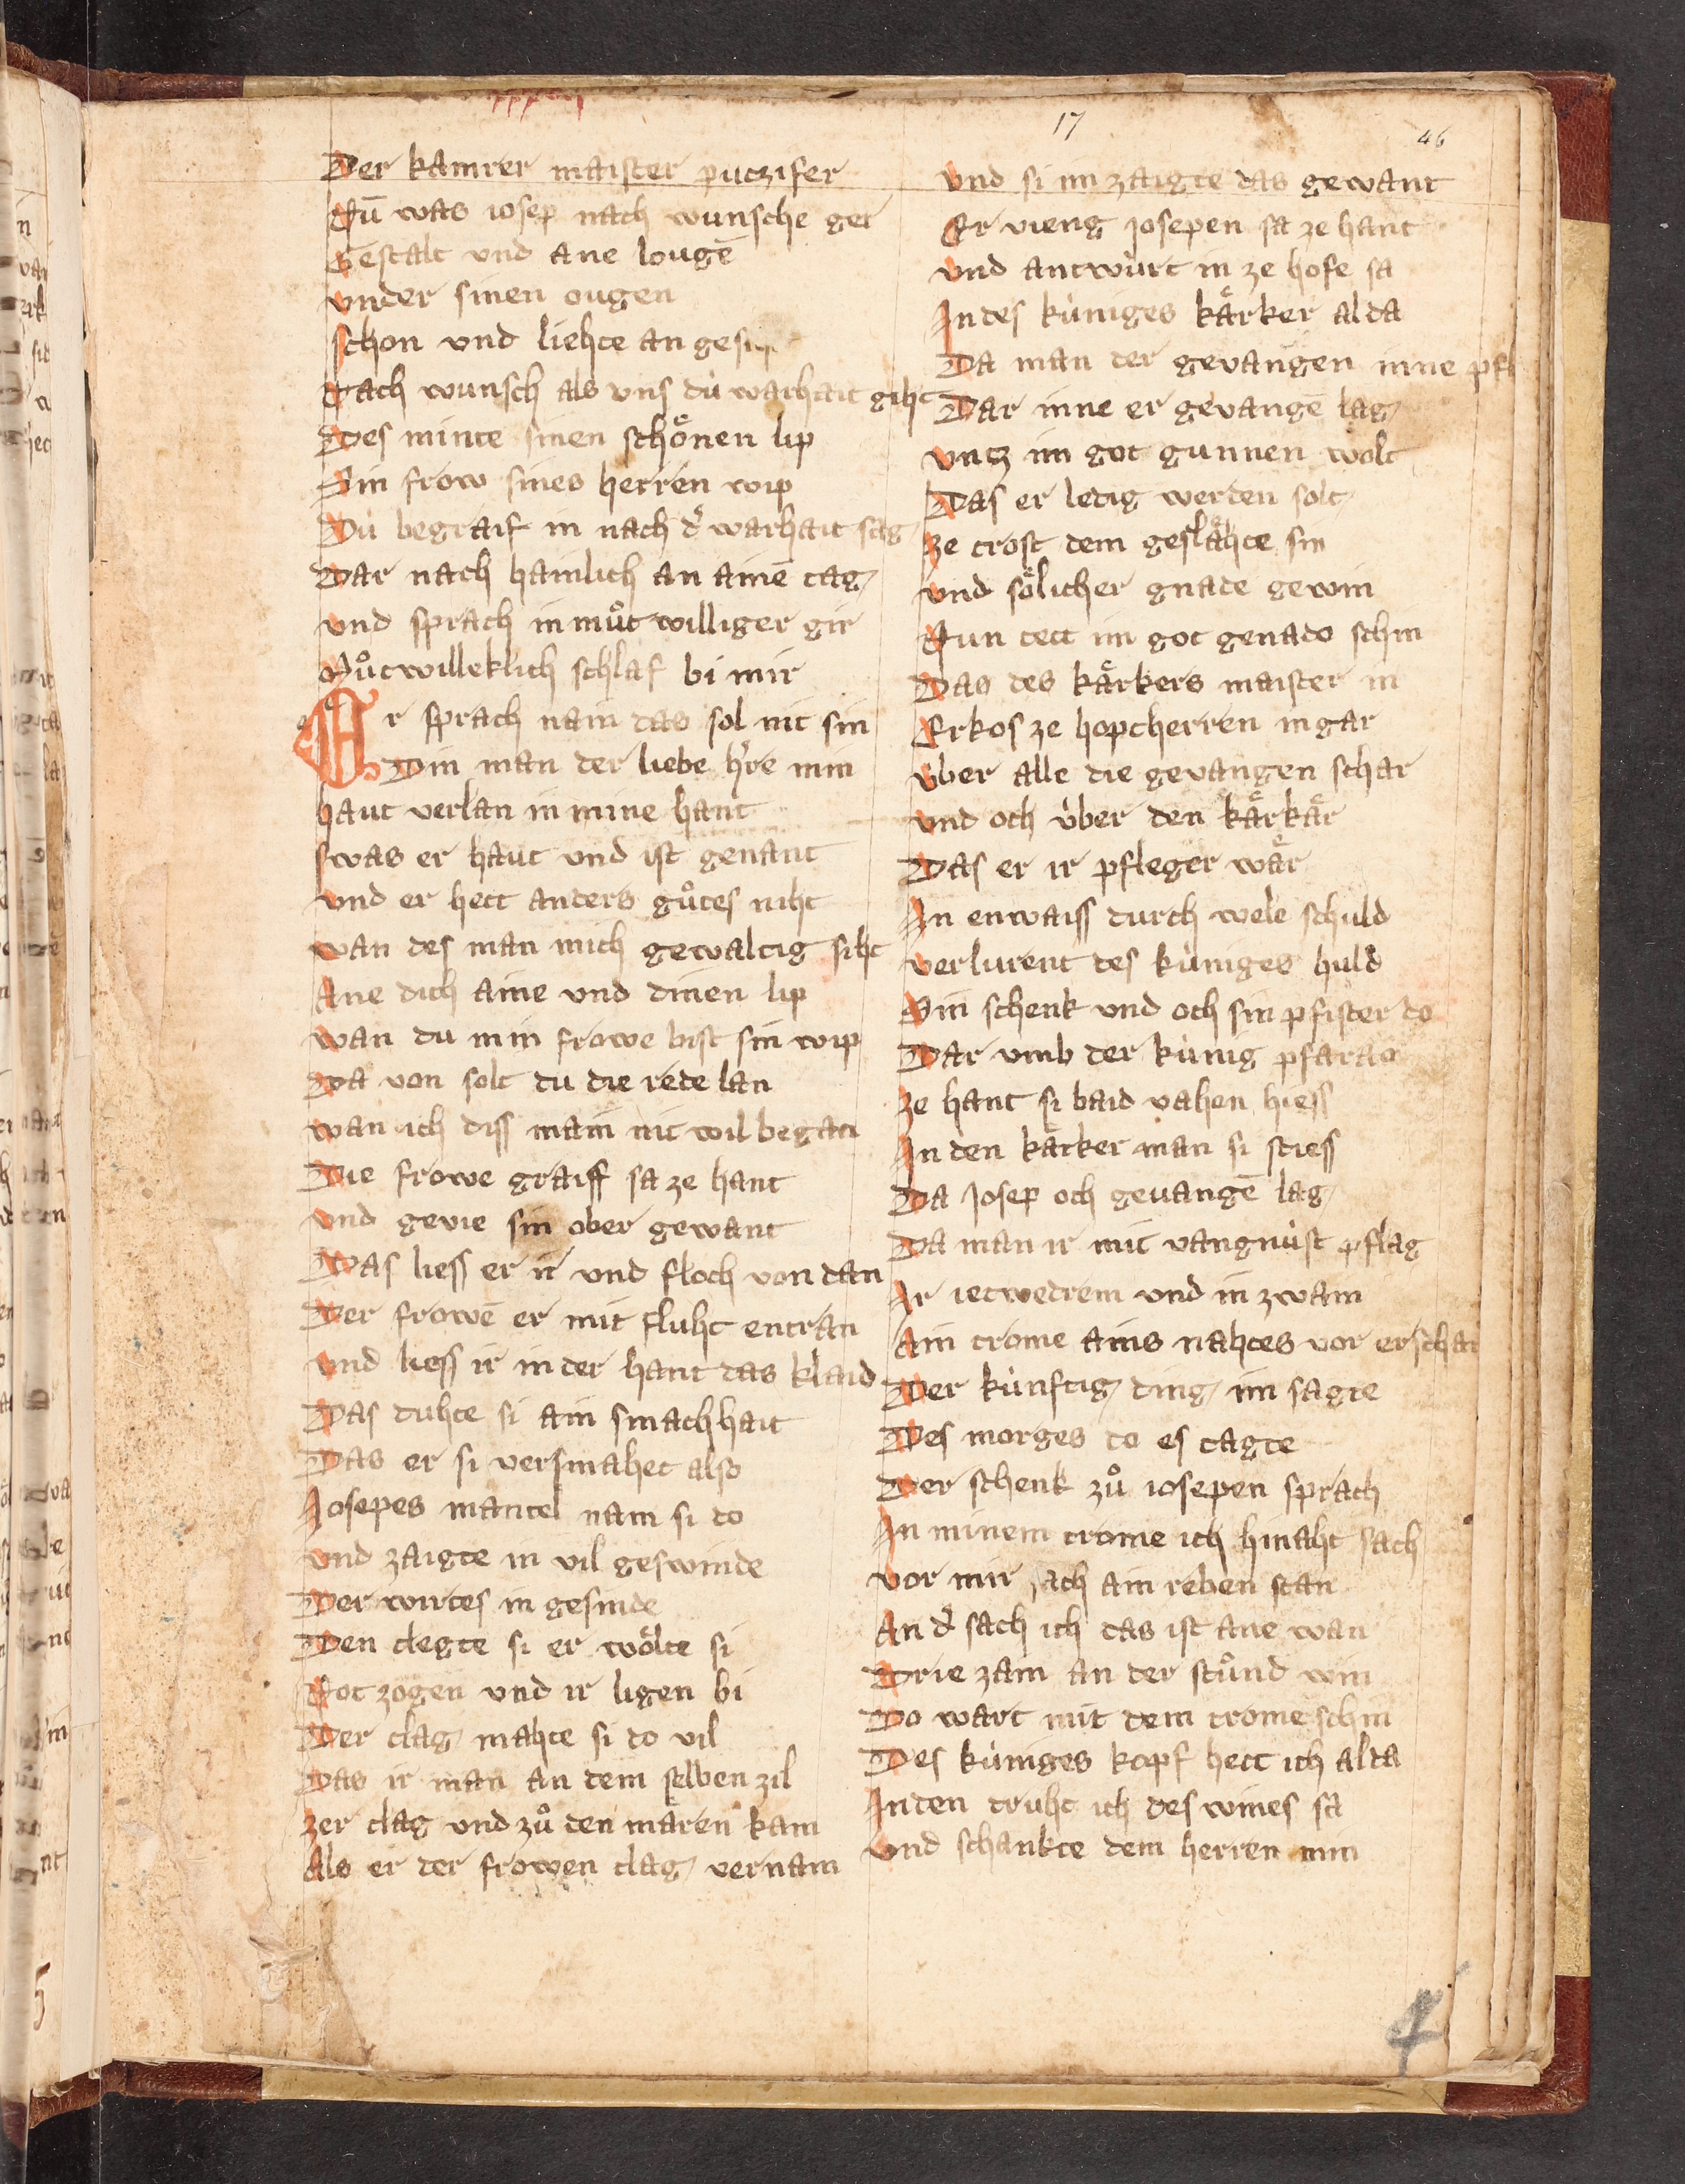 17
46
Der kamrer maister putzifer
Nū was iosep nach wunsche ger
Gestalt vnd ane lougē
vnder sinen ougen
schon vnd liehte an
Nach wunsch als vns dù warhait giht
Des minte sinen schoͤnen lip
Sin frow sines herren wip
Dù begraif in nach d̕ warhait sag
Dar nach hainlich an ainē tag
vnd sprach in muͦt williger gir
Muͦtwilleklich schlaf bi mir
Er sprach nain das sol nit sin
Din man der liebe h̕re min
haut verlan in mine hant
swas er haut vnd ist genant
vnd er hett anders guͦtes niht
wan des man mich gewaltig siht
Ane dich aine vnd dinen lip
wan du min frowe bist sin wip
Da von solt du die rede lan
wan ich diss main nit wil began
Die frowe graiff sa ze hant
vnd gevie sin ober gewant
Das liess er ir vnd floch von dan
Der frowē er mit fluht entran
vnd liess ir in der hant das klaid
Das duhte si ain smachhait
Das er si versmahet also
Josepes mantel nam si do
vnd zaigte in vil geswinde
Der wirtes in gesinde
Den clegte si er woͤlte si
Not zogen vnd ir ligen bi
Der clag mahte si do vil
Das ir man an dem selben zil
zer clag vnd zuͦ den maͤren kam
Als er der frowen clag vernam
vnd si im zaigte das gewant
Er vieng josepen sa ze hant
vnd antwùrt in ze hofe sa
In des kùniges kaͤrker alda
Da man der gevangen inne
Dar inne er gevangē lag
vntz im got gunnen wolt
Das er ledig werden solt
ze trost dem geslaͤhte sin
vnd soͤlicher gnade gewin
Nun tett im got genade schin
Das des kaͤrkers maister in
Erkos ze hoptherren in gar
vber alle die gevangen schar
vnd och ùber den kaͤrkaͤr
Das er ir pfleger waͤr
In enwaiss durch wele schuld
verlurent des kùniges huld
Sin schenk vnd och sin pfister do
Dar vmb der kùnig pfarao
ze hant si baid vahen hiess
In den karker man si stiess
Da Josep och gevangē lag
Da man ir mit vangnùst pflag
Ir ietwedrem vnd in zwain
Ain trome ains nahtes vor
Der kùnftig ding im sagte
Des morges do es tagte
Der schenk zuͦ iosepen sprach
In minem trome ich hinaht sach
vor mir sach ain reben stan
An d̕ sach ich das ist ane wan
Drie zain an der stuͦnd win
Do wart mit dem trome schin
Des kùniges kopf hett ich alda
In den truht ich des wines sa
vnd schankte dem herren min
4